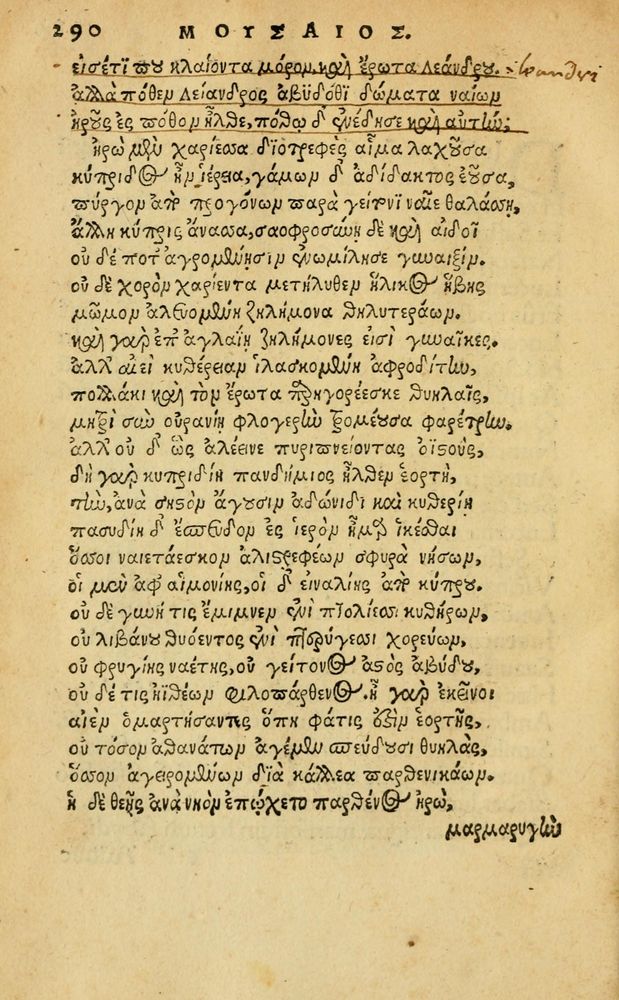 290 ΜΟΥΣΑΙΟΣ.
εἰσέτι που κλαίοντα μόρον καὶ ἔρωτα Λεάνδρου. Leandri
ἀλλὰ πόθεν Λείανδρος ἀβυδόθι δώματα ναίων
ἡροῦς ἐς πόθον ἦλθε, πόθῳ δ᾽ ἐνέδησε καὶ αὐτήν;
ἡρὼ μὲν χαρίεσσα διοτρεφὲς αἷμα λαχοῦσα
κύπριδος ἦν ἱέρεια, γάμων δ᾽ ἀδίδακτος ἐοῦσα,
πύργον ἀπὸ προγόνων παρὰ γείτονι ναῖε θαλάσσῃ,
ἄλλη κύπρις ἄνασσα, σαοφροσύνῃ δὲ καὶ αἰδοῖ
οὐδέ ποτ᾽ ἀγρομένῃσιν ἐνωμίλησε γυναιξίν.
οὐδὲ χορὸν χαρίεντα μετήλυθεν ἥλικος ἥβης
μῶμον ἀλευομένη ζηλήμονα θηλυτεράων.
καὶ γὰρ ἐπ᾽ ἀγλαΐῃ ζηλήμονές εἰσι γυναῖκες.
ἀλλ᾽ αἰεὶ κυθέρειαν ἱλασκομένη ἀφροδίτην,
πολλάκι καὶ τὸν ἔρωτα παρηγορέεσκε θυηλαῖς,
μητρὶ σὺν οὐρανίῃ φλογερὴν τρομέουσα φαρέτρην.
ἀλλ᾽ οὐδ᾽ ὣς ἀλέεινε πυριπνείοντας ὀϊστούς,
δὴ γὰρ κυπριδίη πανδήμιος ἦλθεν ἑορτή,
τὴν, ἀνὰ σηστὸν ἄγουσιν ἀδώνιδι καὶ κυθερείῃ
πασυδίῃ δ᾽ ἔσπευδον ἐς ἱερὸν ἦμαρ ἱκέσθαι
ὅσσοι ναιετάεσκον ἁλιστρεφέων σφυρὰ νήσων,
οἱ μὲν ἀφ᾽ αἱμονίης, οἱ δ᾽ εἰναλίης ἀπὸ κύπρου.
οὐδὲ γυνή τις ἔμιμνεν ἐνὶ πτολίεσσι κυθήρων,
οὐ λιβάνου θυόεντος ἐνὶ πτερύγεσσι χορεύων,
οὐ φρυγίης ναέτης, οὐ γείτονος ἀστὸς ἀβύδου,
οὐδέ τις ἠϊθέων φιλοπάρθενος. ἦ γὰρ ἐκεῖνοι
αἰὲν ὁμαρτήσαντες ὅπῃ φάτις ἐστὶν ἑορτῆς,
οὐ τόσον ἀθανάτων ἀγέμεν σπεύδουσι θυηλάς,
ὅσσον ἀγειρομένων διὰ κάλλεα παρθενικάων.
ἡ δὲ θεῆς ἀνὰ νηὸν ἐπῴχετο παρθένος ἡρὼ,
μαρμαρυγὴν